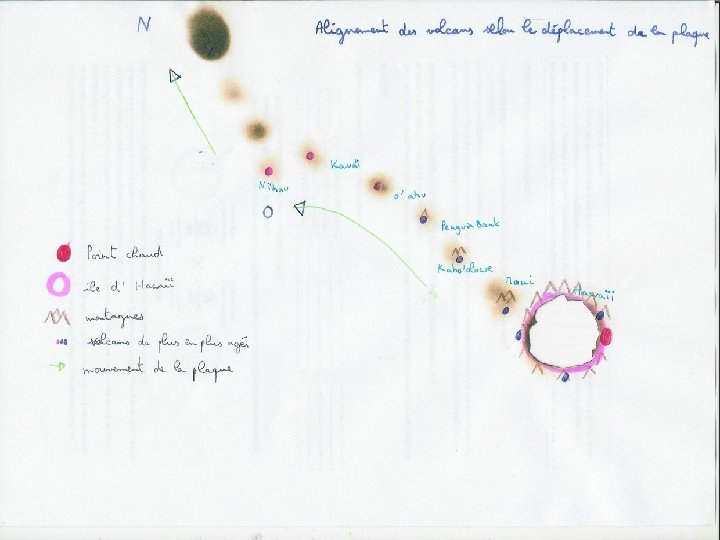 N
Alignement des volcans selon le déplacement de la plaque
Kauaï
Niihau
O'ahu
O
Penguin Bank
Kaho'olawe
Maui
Hawaïi
Point chaud
île d'Hawaïi
montagnes
volcans de plus en plus agés
mouvement de la plaque